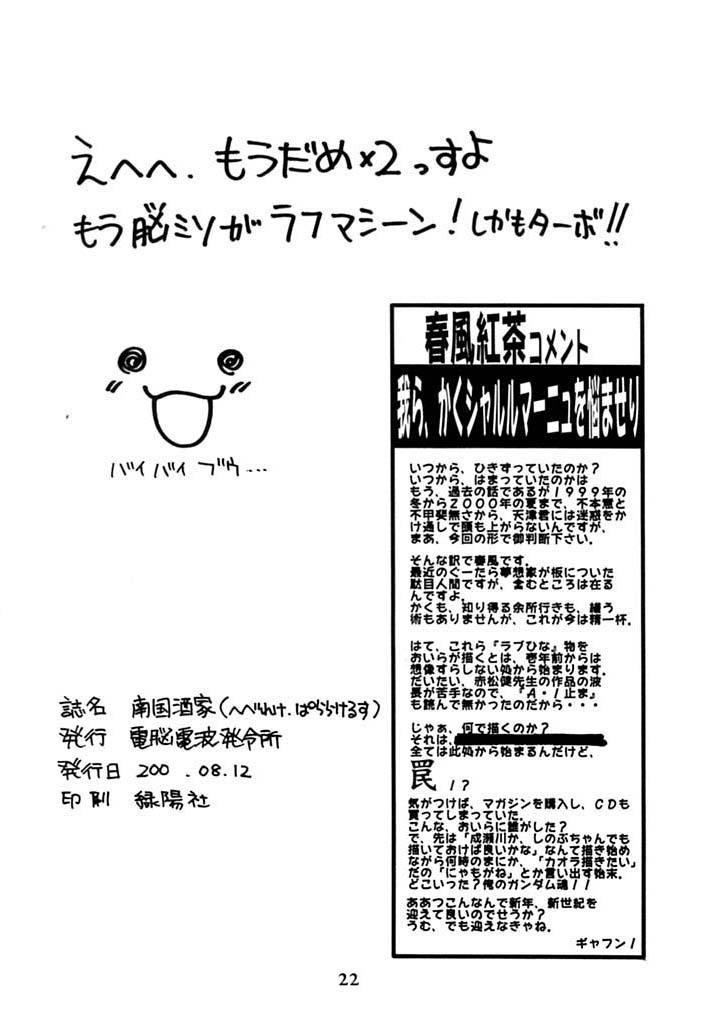 えへへ.もうだめ×2っすよ
もう脳ミソがラフマシーン!しかもターボ!!
バイバイブウ…
春風紅茶コメント
我ら、かくシャルルマーニュを悩ませり
いつから、ひきずっていたのか?
いつから、はまっていたのかは
もう、過去の話であるが1999年の
冬から2000年の夏まで、不本意と
不甲斐無さから、天津君には迷惑をか
け通しで頭も上がらないんですが、
まあ、今回の形で御判断下さい。
そんな訳で春風です。
最近のぐーたら夢想家が板についた
駄目人間ですが、含むところは在る
んですよ。
かくも、知り得る余所行きも、繕う
術もありませんが、これが今は精一杯。
はて、これら『ラブひな』物を
おいらが描くとは、壱年前からは
想像すらしない処から始まります。
だいたい、赤松健先生の作品の波
長が苦手なので、『A・I止ま』
も読んで無かったのだから・・・
じゃぁ、何で描くのか?
それは、
全ては此処から始まるんだけど、
罠!?
気がつけば、マガジンを購入し、CDも
買ってしまっていた。
こんな、おいらに誰がした?
で、先は「成瀬川か、しのぶちゃんでも
描いておけば良いかな」なんて描き始め
ながら何時のまにか、「カオラ描きたい」
だの「にゃもがね」とか言い出す始末。
どこいった?俺のガンダム魂!!
ああつこんなんで新年、新世紀を
迎えて良いのでせうか?
うむ、でも迎えなきゃね。
ギャフン!
誌名 南国酒家(へべれけ.ぱらららけるす)
発行 電脳電波発令所
発行日 200 .08.12
印刷 緑陽社
22